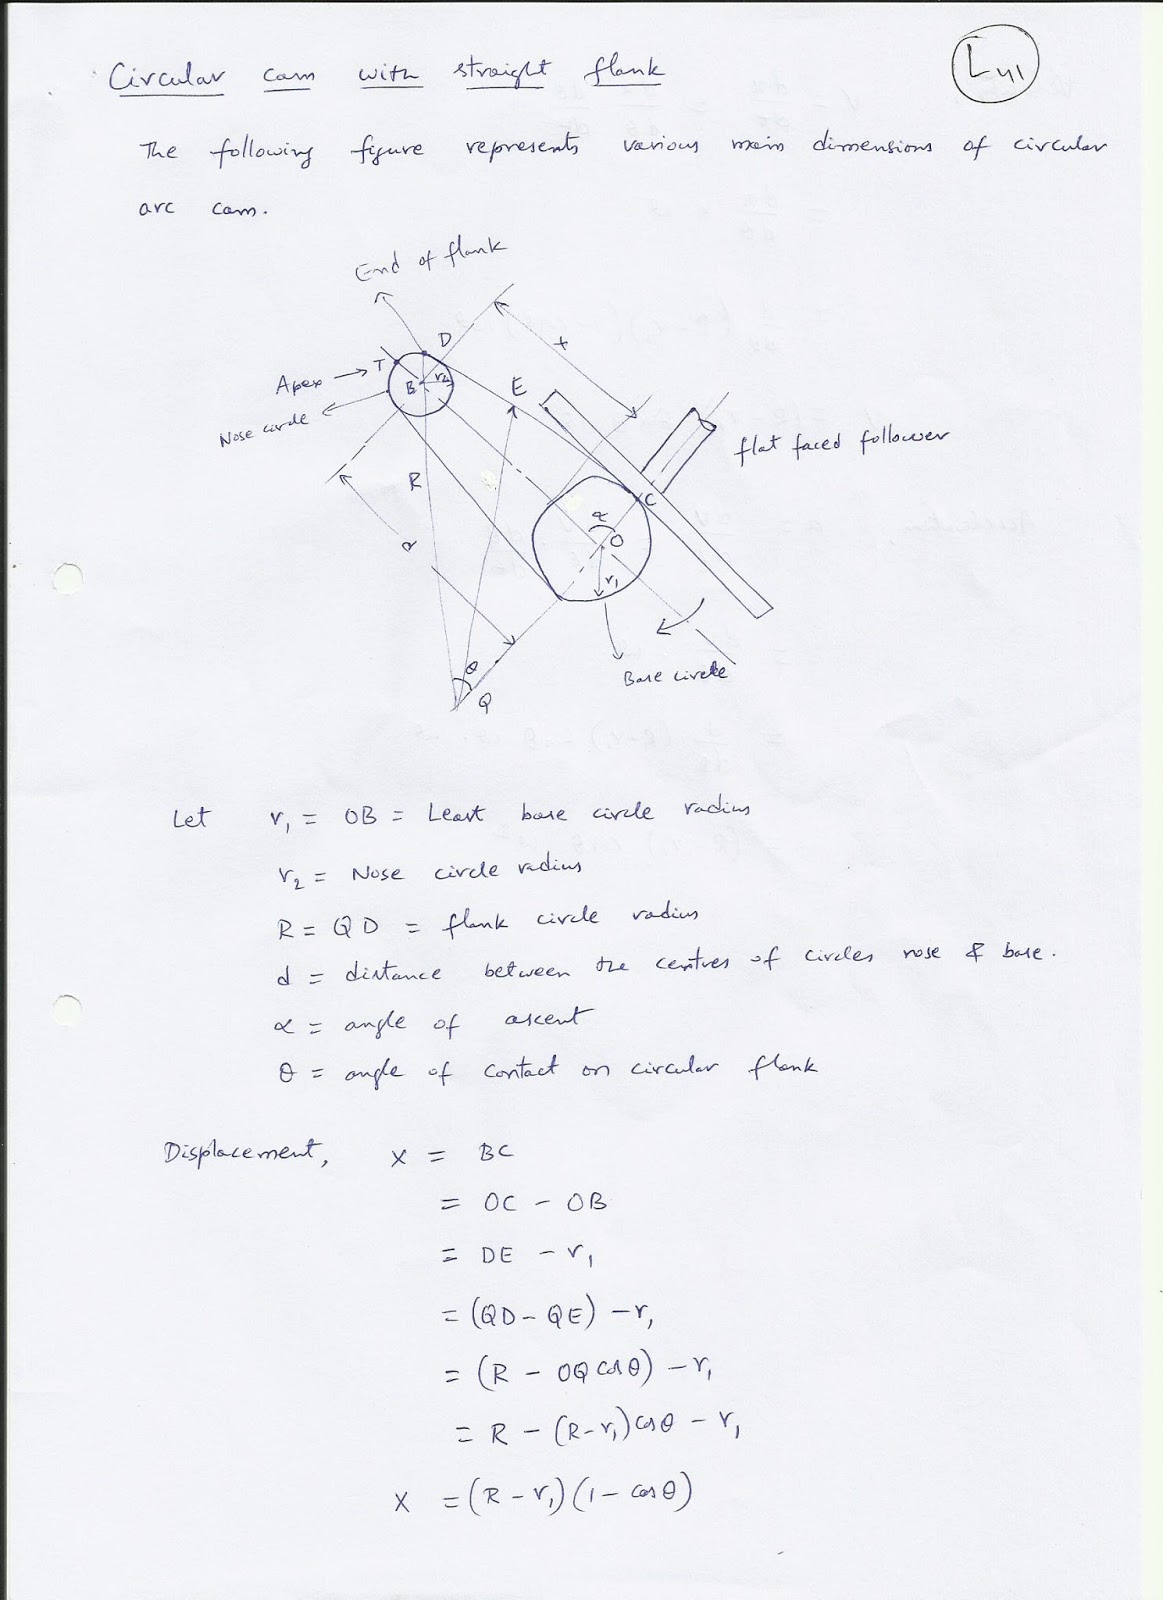 L41
Circular cam with straight flank
The following figure represents various main dimensions of circular
arc cam.
End of flank
D
T
x
Apex
B
r2
E
Nose circle
flat faced follower
R
C
α
O
d
r1
θ
Base circle
Q
Let r1 = OB = Least base circle radius
r2 = Nose circle radius
R = QD = flank circle radius
d = distance between the centres of circles nose & base.
α = angle of ascent
θ = angle of contact on circular flank
Displacement, x = BC
= OC - OB
= DE - r1
= (QD - QE) - r1
= (R - OQ cosθ) - r1
= R - (R-r1) cosθ - r1
x = (R - r1) (1 - cosθ)